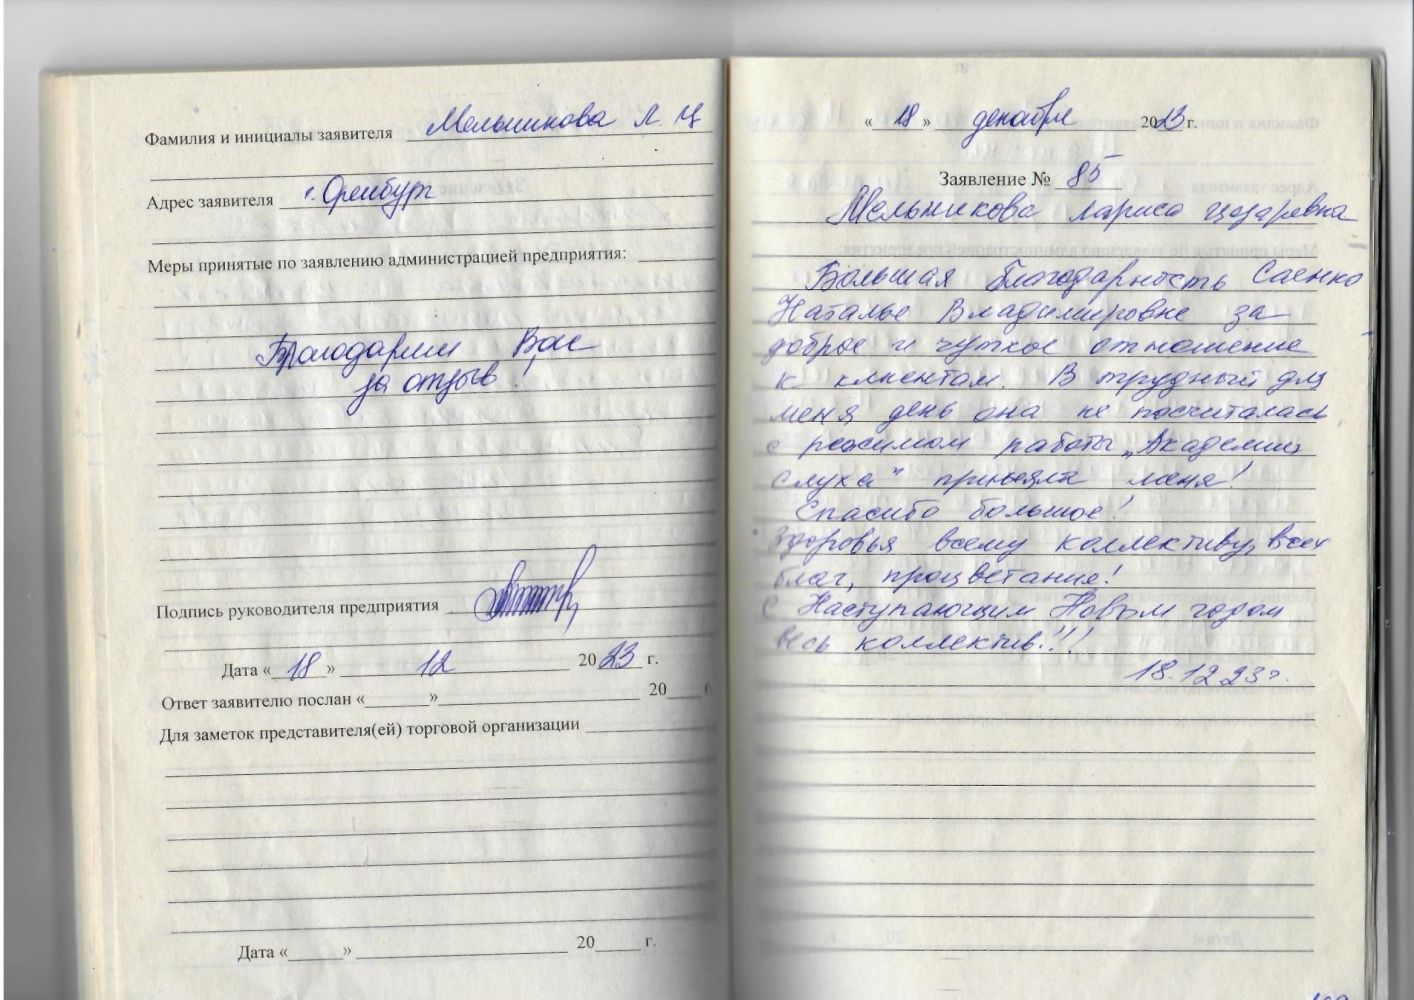 Фамилия и инициалы заявителя Мельникова Л. Ц
Адрес заявителя г. Оренбург
Меры принятые по заявлению администрацией предприятия:
Благодарим Вас
за отзыв.
Подпись руководителя предприятия
Дата «18» 12 2023 г.
Ответ заявителю послан «    » 20    г
Для заметок представителя(ей) торговой организации
Дата «    » 20    г.
«18» декабря 2023 г.
Заявление № 85
Мельникова Лариса Цезаревна
Большая благодарность Саенко
Наталье Владимировне за
доброе и чуткое отношение
к клиентам. В трудный для
меня день она не посчиталась
с режимом работы „Академии
слуха" приняла меня!
Спасибо большое!
Здоровья всему коллективу, всех
благ, процветания!
С Наступающим Новым годом
весь коллектив!!!
18.12.23г.